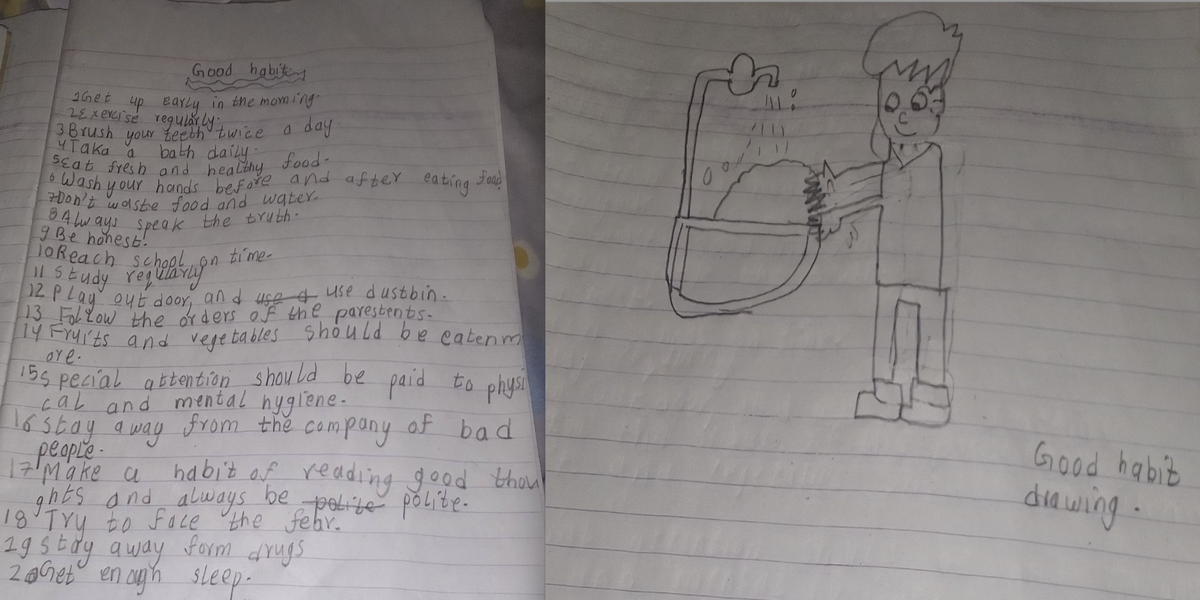 Good habits
1Get up early in the morning.
2Exercise regularly.
3Brush your teeth twice a day
4Taka a bath daily.
5Eat fresh and healthy food.
6Wash your hands before and after eating food.
7Don't waste food and water.
8Always speak the truth.
9Be honest.
10Reach school on time.
11 Study regularly
12 Play outdoor, and use d use dustbin.
13 Follow the orders of the parestents.
14 Fruits and vegetables should be eaten m
ore.
15 Special attention should be paid to physi
cal and mental hygiene.
16 Stay away from the company of bad
people.
17 Make a habit of reading good thou
ghts and always be polite polite.
18 Try to face the fear.
19 Stay away form drugs
20Get enough sleep.
Good habit
drawing.